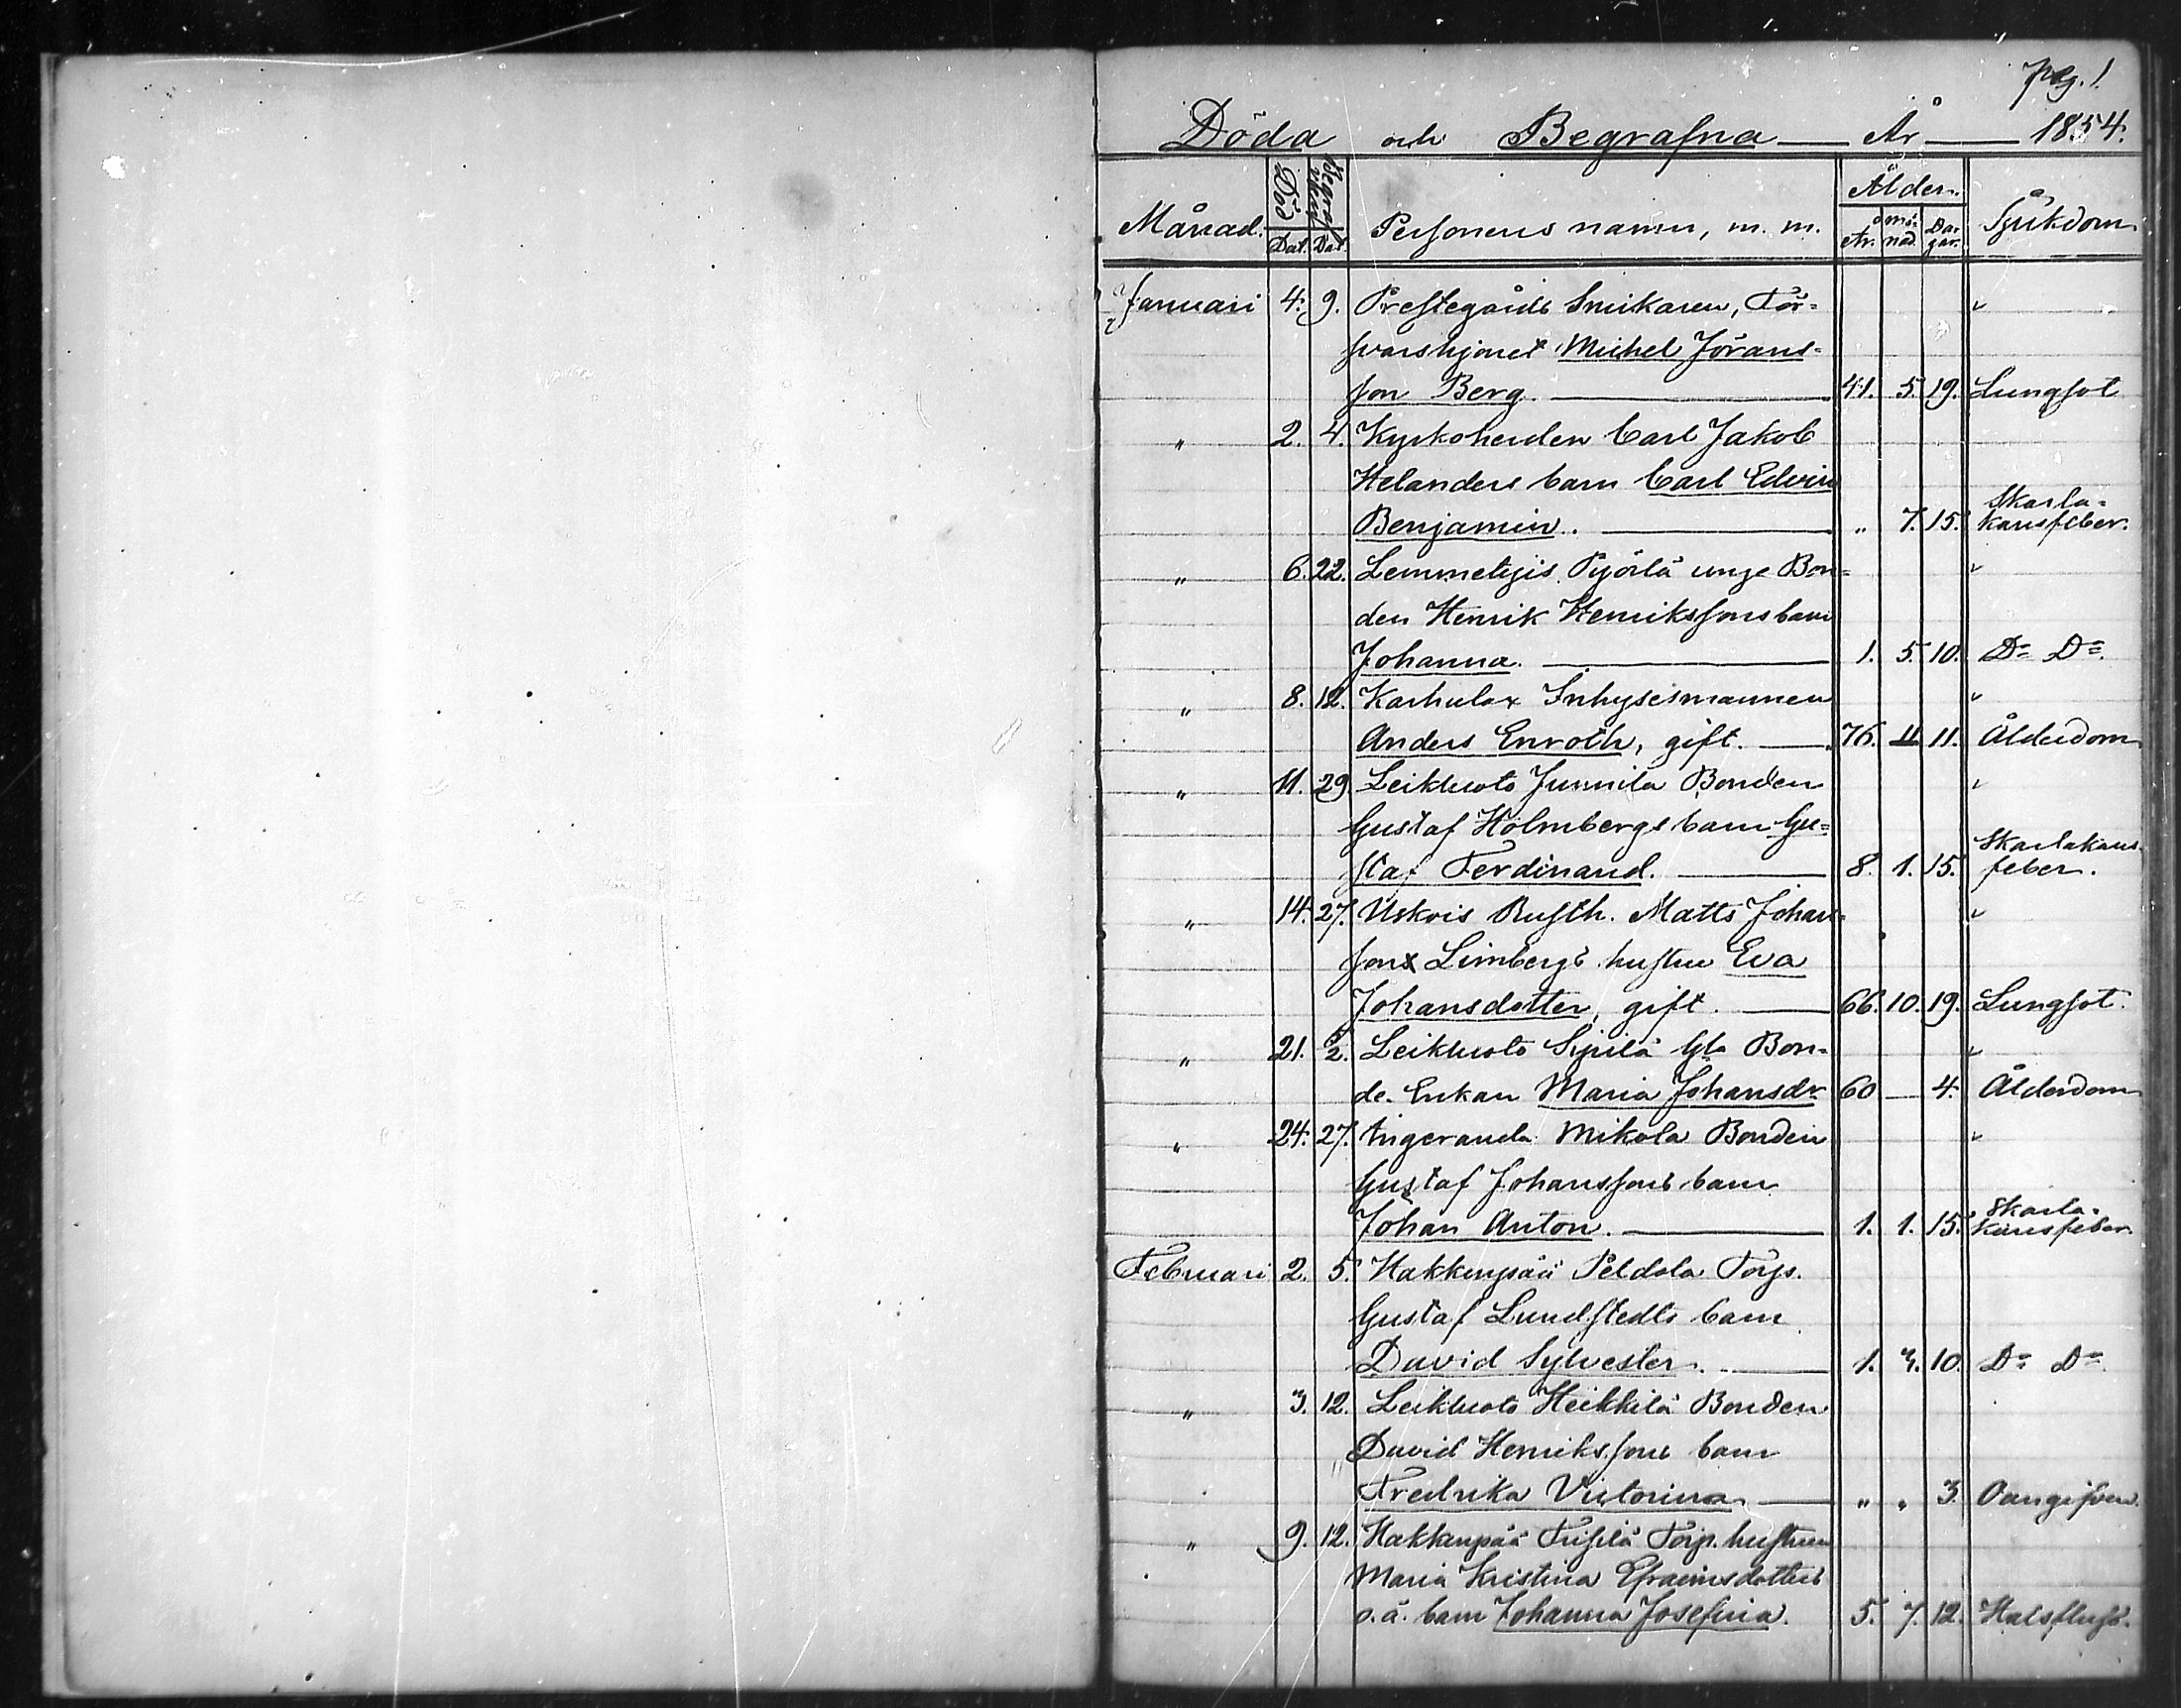 pag. 1.
Döda och Begrafna — År — 1854.
Månad. Död Dat. Begrafven Dat. Personens namn, m. m. Ålder. År. Månad. Dagar. Sjukdom
Januari 4. 9. Prestegårds Snikaren, För-
svarshjonet Michel Jörans-
son Berg. — 41. 5. 19. Lungsot
" 2. 4. Kyrkoherden Carl Jakob
Helanders barn Carl Edvin
Benjamin. — " 7. 15. Skarla-
kansfeber.
" 6. 22. Lemmetyis Pyörlä unge Bon-
den Henrik Henrikssons barn
Johanna. — 1. 5. 10. Do Do.
" 8. 12. Karhula Inhysesmannen
Anders Enroth, gift. — 76. 11 11. Ålderdom
" 11. 29. Leikluoto Junnila Bonden
Gustaf Holmbergs barn Gu-
staf Ferdinand. — 8. 1. 15. Skarlakans-
feber.
" 14. 27. Uskois Rusth. Matts Johans-
sons Limbergs hustru Eva
Johansdotter, gift. — 66. 10. 19. Lungsot.
" 21. 5/2. Leikluoto Sipilä Gla Bon-
de-Enkan Maria Johansdr 60 — 4. Ålderdom
" 24. 27. Ingeranda Mikola Bonden
Gustaf Johanssons barn
Johan Anton. — 1. 1. 15. Skarla-
kansfeber.
Februari 2. 5. Hakkenpää Peldola Torp.
Gustaf Lundstedts barn
David Sylvester. — 1. 3. 10. Do Do
" 3. 12. Leikluoto Heikkilä Bonden
David Henrikssons barn
Fredrika Victorina — " " 3. Oangifven.
" 9. 12. Hakkenpää Torp. hustrun
Maria Kristina Efraimsdotters
o. ä. barn Johanna Josefina. 5. 7. 12. Halsfluss.